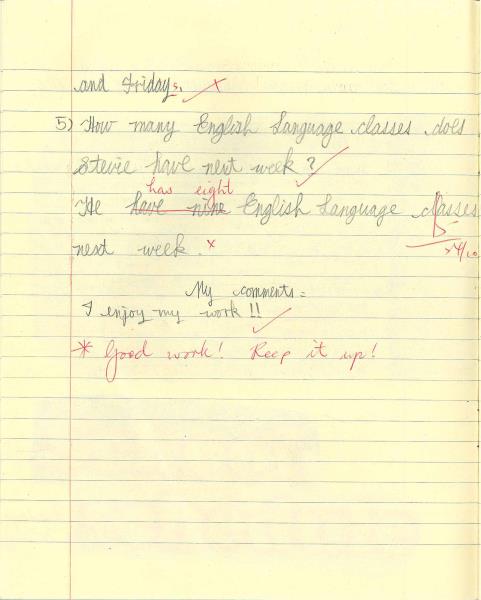 and Fridays.
5) How many English Language classes does
Stevie have next week?
has eight
He have nine English Language classes
next week.
My comments:
I enjoy my work!!
* Good work! Keep it up!